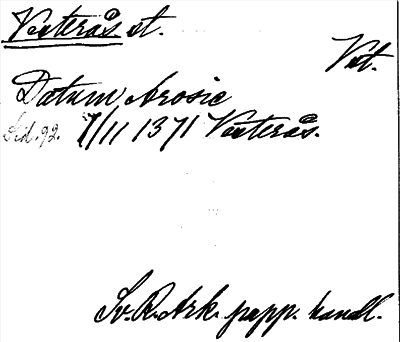 Vesterås st.
Vst.
Datum Arosie
Sid. 92. 7/11 1371 Vesterås.
Sv. R. Ark. papp. handl.